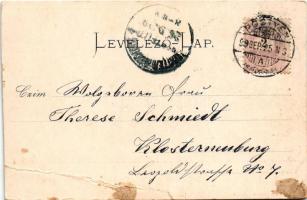 LEVELEZŐ-LAP.
Czím Wolgeboren Frau
Therese Schmiedt
Klosterneuburg
Leopoldstrasse No 7.